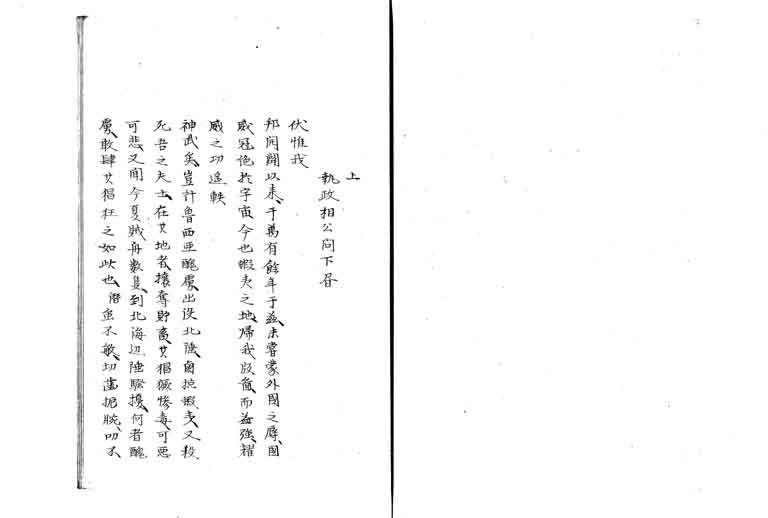 上
執政相公閤下書
伏惟我
邦開闢以来、于萬有餘年于茲、未嘗蒙外國之辱、國
威冠絶於宇宙、今也蝦夷之地、帰我版圖、而益強、耀
威之功遥軼
神武矣、豈計魯西亜醜虜、出没北陲、鹵掠蝦夷、又殺
死吾之夫士、在其地者、攘奪貯畜、其猖獗惨毒、可悪
可悲、又聞今夏賊舟数隻、到北海辺陲騒擾、何者醜
虜、敢肆其猖狂之如此也、潜 不敏、切歯扼腕、叨不